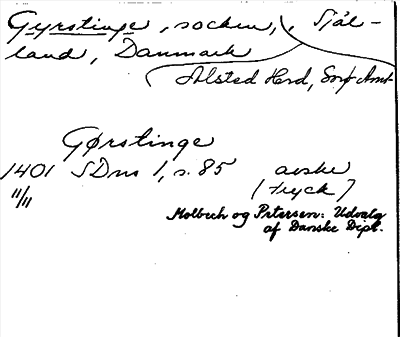 Gyrstinge, socken, Själ-
land, Danmark
Alsted Herd, Sorø Amt
Gørstinge
1401 SDns 1, s. 85 avskr
11/11 (tryck)
Molbech og Petersen: Udvalg
af Danske Dipl.